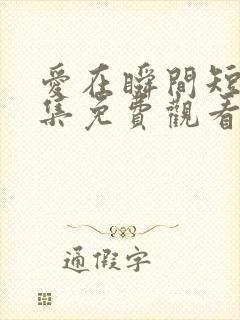 愛在瞬間短
集免費觀看
通假字